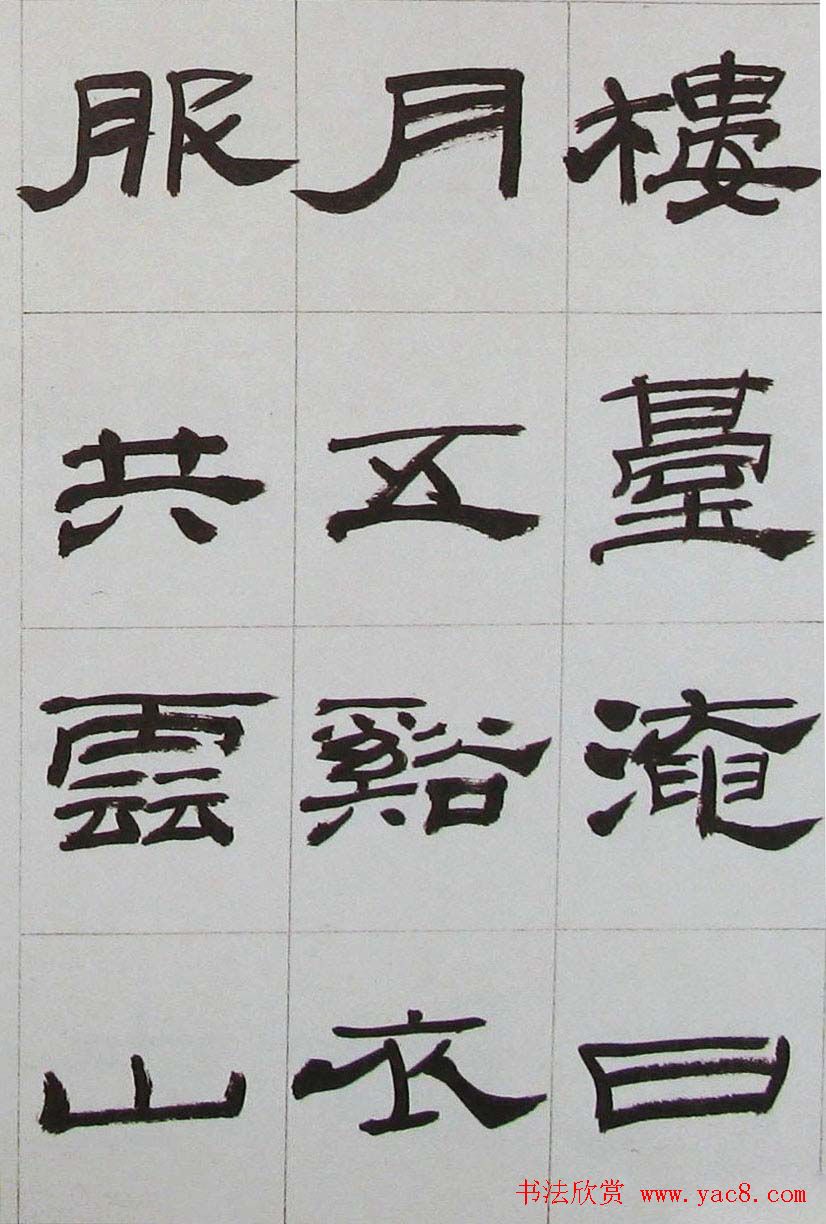 樓臺淹日
月五谿衣
服共雲山
书法欣赏 www.yac8.com